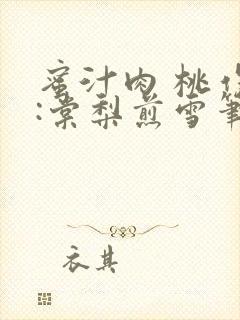 蜜汁肉桃作
:棠梨煎雪笔
衣其